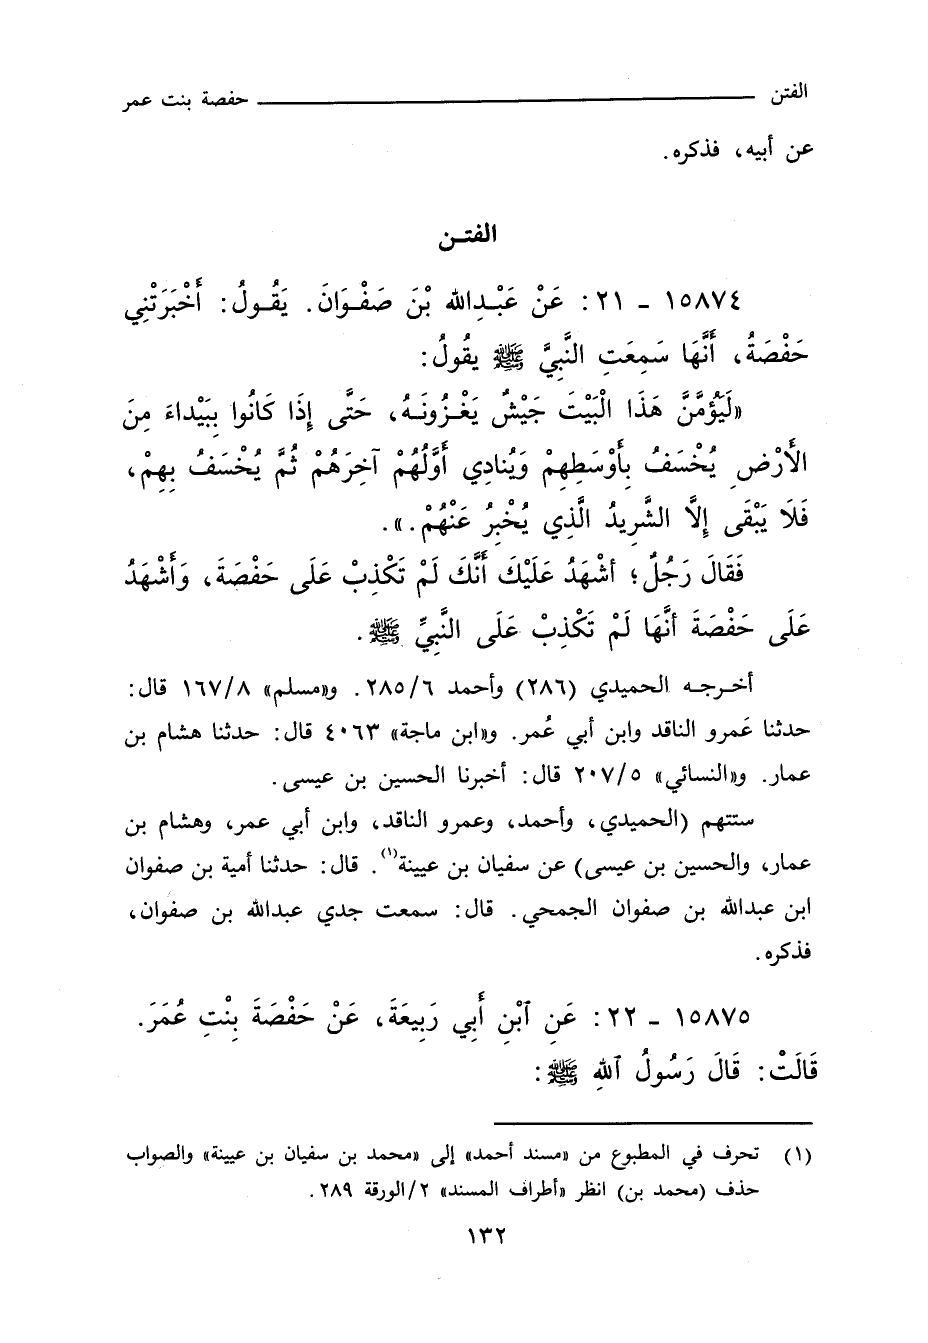 الفتن ــــــــــــــــــــ حفصة بنت عمر
عن أبيه، فذكره.
الفتـن
١٥٨٧٤ ـ ٢١: عَنْ عَبْـدِالله بْنَ صَفْـوَانَ. يَقُـولُ: أَخْبَرَتْنِي
حَفْصَةُ، أَنَّهَا سَمِعَتِ النَّبِيَّ ﷺ يقُولُ:
«لَيَؤُمَّنَّ هَذَا الْبَيْتَ جَيْشٌ يَغْـزُونَـهُ، حَتَّى إِذَا كَانُوا بِبَيْداءَ مِنَ
الأَرْضِ يُخْسَفُ بِأَوْسَطِهِمْ وَيُنادِي أَوَّلُهُمْ آخِرَهُمْ ثُمَّ يُخْسَفُ بِهِمْ،
فَلَا يَبْقَى إِلَّا الشَّرِيدُ الَّذِي يُخْبِرُ عَنْهُمْ.».
فَقَالَ رَجُلٌ؛ أشْهَدُ عَلَيْكَ أَنَّكَ لَمْ تَكْذِبْ عَلَى حَفْصَةَ، وَأَشْهَدُ
عَلَى حَفْصَةَ أنَّهَا لَمْ تَكْذِبْ عَلَى النَّبِيِّ ﷺ.
أخـرجـه الحميدي (٢٨٦) وأحمد ٢٨٥/٦. و«مسلم» ١٦٧/٨ قال:
حدثنا عَمرو الناقد وابن أبي عُمر. و«ابن ماجة» ٤٠٦٣ قال: حدثنا هشام بن
عمار. و«النسائي» ٢٠٧/٥ قال: أخبرنا الحسين بن عيسى.
ستتهم (الحميدي، وأحمد، وعمرو الناقد، وابن أبي عمر، وهشام بن
عمار، والحسين بن عيسى) عن سفيان بن عيينة(١). قال: حدثنا أمية بن صفوان
ابن عبدالله بن صفوان الجمحي. قال: سمعت جدي عبدالله بن صفوان،
فذكره.
١٥٨٧٥ ـ ٢٢: عَنِ ٱبْنِ أَبِي رَبِيعَةَ، عَنْ حَفْصَةَ بِنْتِ عُمَرَ.
قَالَتْ: قَالَ رَسُولُ ٱللهِ ﷺ:
(١) تحرف في المطبوع من «مسند أحمد» إلى «محمد بن سفيان بن عيينة» والصواب
حذف (محمد بن) انظر «أطراف المسند» ٢/الورقة ٢٨٩.
١٣٢